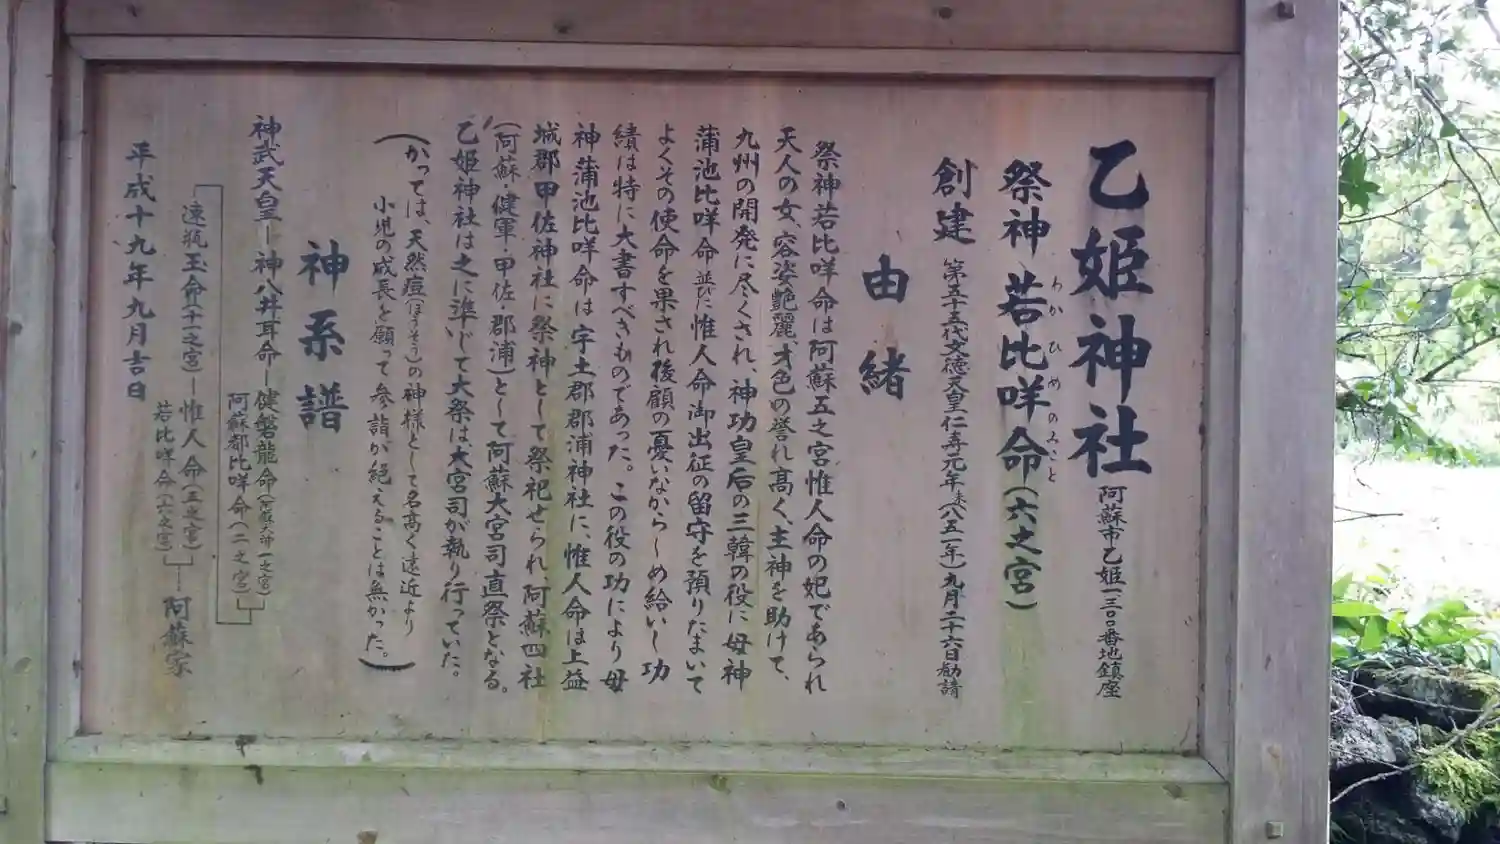 乙姫神社 阿蘇市乙姫一三〇〇番地鎮座
祭神 若比咩命(六之宮)
わかひめのみこと
創建 第五十五代文徳天皇仁寿元年未(八五一年)九月二十六日勧請
由緒
祭神若比咩命は阿蘇五之宮惟人命の妃であられ
天人の女、容姿艶麗、才色の誉れ高く、主神を助けて、
九州の開発に尽くされ、神功皇后の三韓の役に母神
蒲池比咩命並びに惟人命御出征の留守を預りたまいて
よくその使命を果され後顧の憂いなからしめ給いし功
績は特に大書すべきものであった。この役の功により母
神蒲池比咩命は宇土郡郡浦神社に、惟人命は上益
城郡甲佐神社に祭神として祭祀せられ、阿蘇四社
(阿蘇・健軍・甲佐・郡浦)として阿蘇大宮司直祭となる。
乙姫神社は之に準じて大祭は大宮司が執り行っていた。
(かっては、天然痘(ほうそう)の神様として名高く遠近より
小児の成長を願って参詣が絶えることは無かった。)
神系譜
神武天皇―神八井耳命―健磐龍命(阿蘇大神一之宮)
阿蘇都比咩命(二之宮)
速瓶玉命(十一之宮)―惟人命(五之宮)
若比咩命(六之宮)
―阿蘇家
平成十九年九月吉日